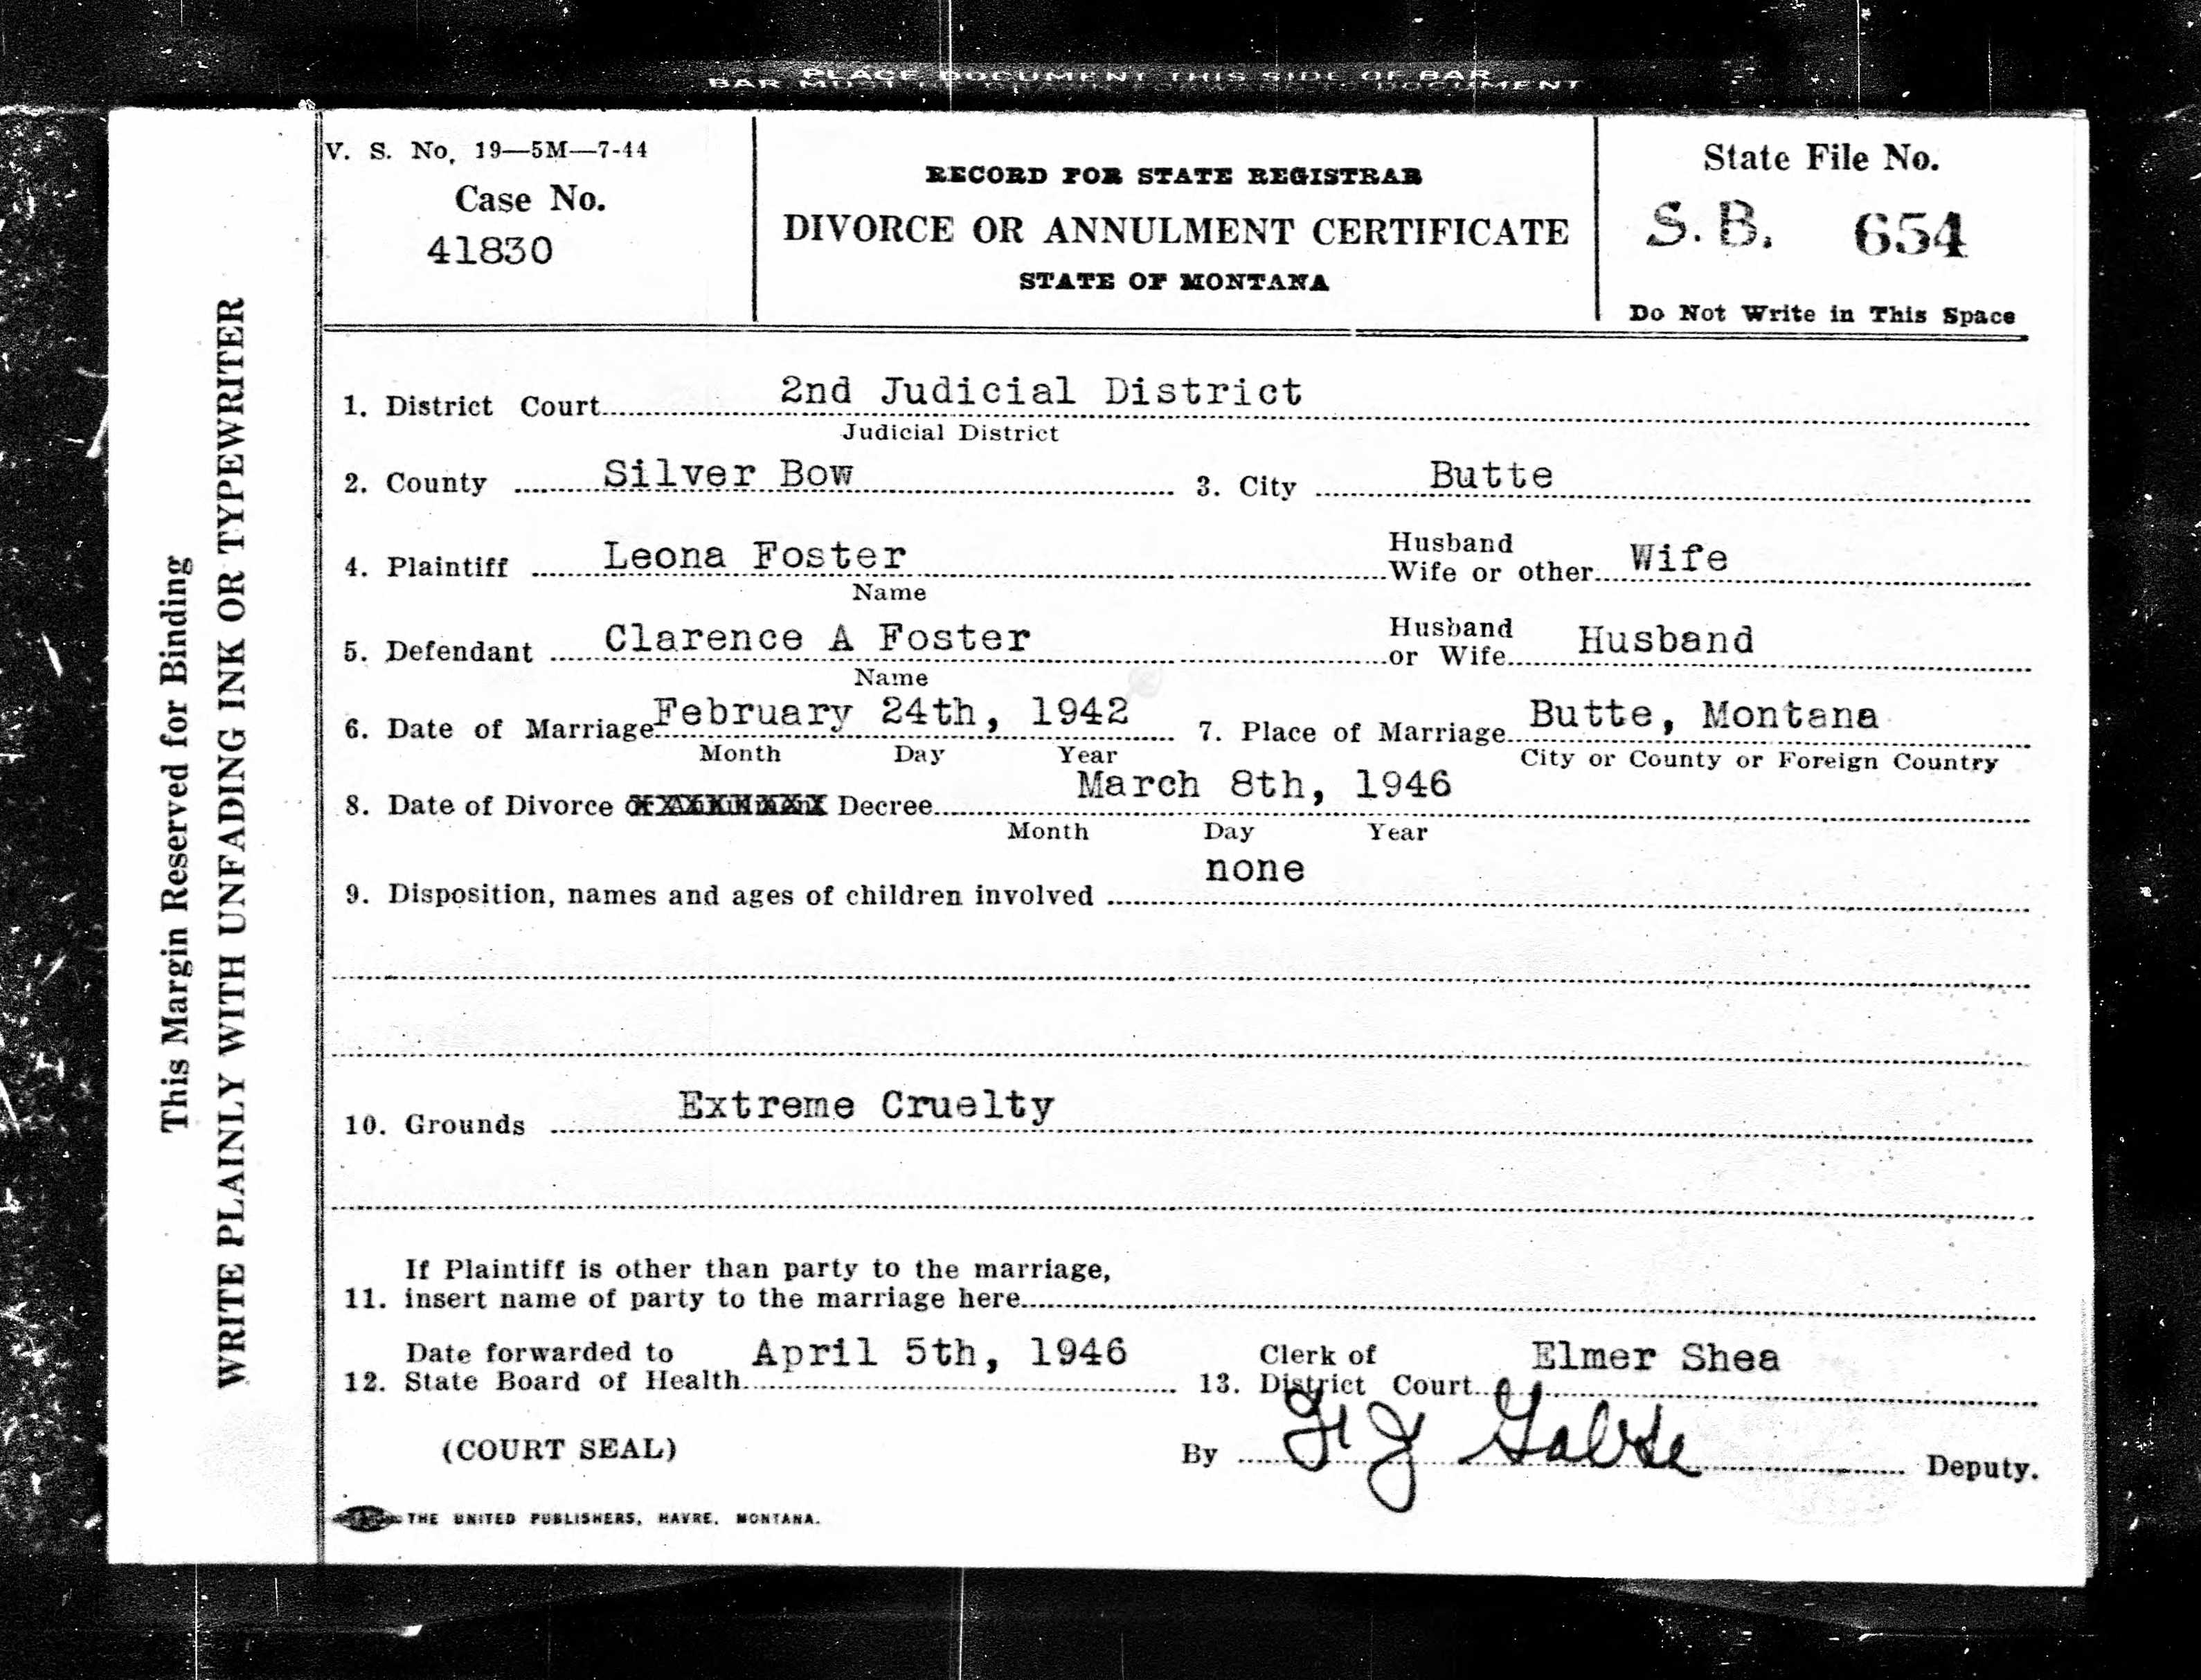 PLACE DOCUMENT THIS SIDE OF BAR
BAR MUST DOCUMENT
V. S. No. 19—5M—7-44
Case No.
41830
RECORD FOR STATE REGISTRAR
DIVORCE OR ANNULMENT CERTIFICATE
STATE OF MONTANA
State File No.
S.B. 654
Do Not Write in This Space
This Margin Reserved for Binding
WRITE PLAINLY WITH UNFADING INK OR TYPEWRITER
1. District Court 2nd Judicial District
Judicial District
2. County Silver Bow 3. City Butte
4. Plaintiff Leona Foster Husband Wife or other Wife
Name
5. Defendant Clarence A Foster Husband or Wife Husband
Name
6. Date of Marriage February 24th, 1942 7. Place of Marriage Butte, Montana
Month Day Year City or County or Foreign Country
8. Date of Divorce Decree March 8th, 1946
Month Day Year
9. Disposition, names and ages of children involved none
10. Grounds Extreme Cruelty
If Plaintiff is other than party to the marriage,
11. insert name of party to the marriage here
Date forwarded to April 5th, 1946 Clerk of Elmer Shea
12. State Board of Health 13. District Court
(COURT SEAL) By Deputy.
THE UNITED PUBLISHERS, HAVRE, MONTANA.